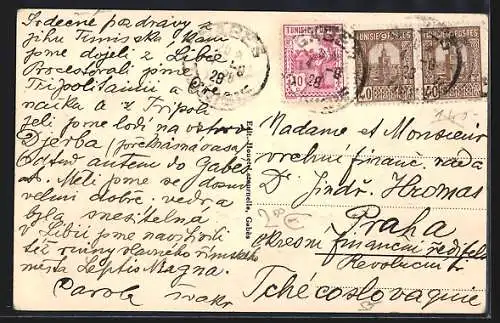 Srdečné pozdravy z
jihu Tuniska kam
jsme dojeli z Libie
Procestovali jsme
Tripolitanii a
a z Tripoli
jeli jsme lodí na ostrov
Djerba
Odtud autem do Gabés
Měli jsme se dosud
velmi dobře vedra
byla snesitelna
V Libii jsme navštívili
též ruiny slavného římského
města Leptis Magna.
Karola
GABES
TUNISIE POSTES
10
GABES
TUNISIE POSTES
40
40
Edit. Gabès
Madame et Monsieur
vrchní financ. rada
Dr. Jindr. Hromas
Praha
okresní finanční ředitel
Revoluční
Tchécoslovaquie